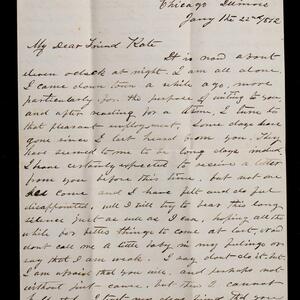 Chicago Illinois
Jany the 22nd 1862
My Dear Friend Kate
It is now about
eleven oclock at night. I am all alone.
I came down town a while ago, more
particularly for the purpose of writing to you
and after reading for a time, I turn to
that pleasant employment. Some days have
gone since I last heard from you. They
have seemed to me to be long days indeed.
I have certainly expected to receive a letter
from you before this time. but not one
has come and I have felt and do feel
disappointed, well I will try to bear this long
silence just as well as I can, hoping all the
while for better things to come at last. Now
dont call me a little baby in my feelings or
say that I am weak. I say dont do it, but
I am afraid that you will. and perhaps not
without just cause. but then I cannot
help it. I my dear friend did you